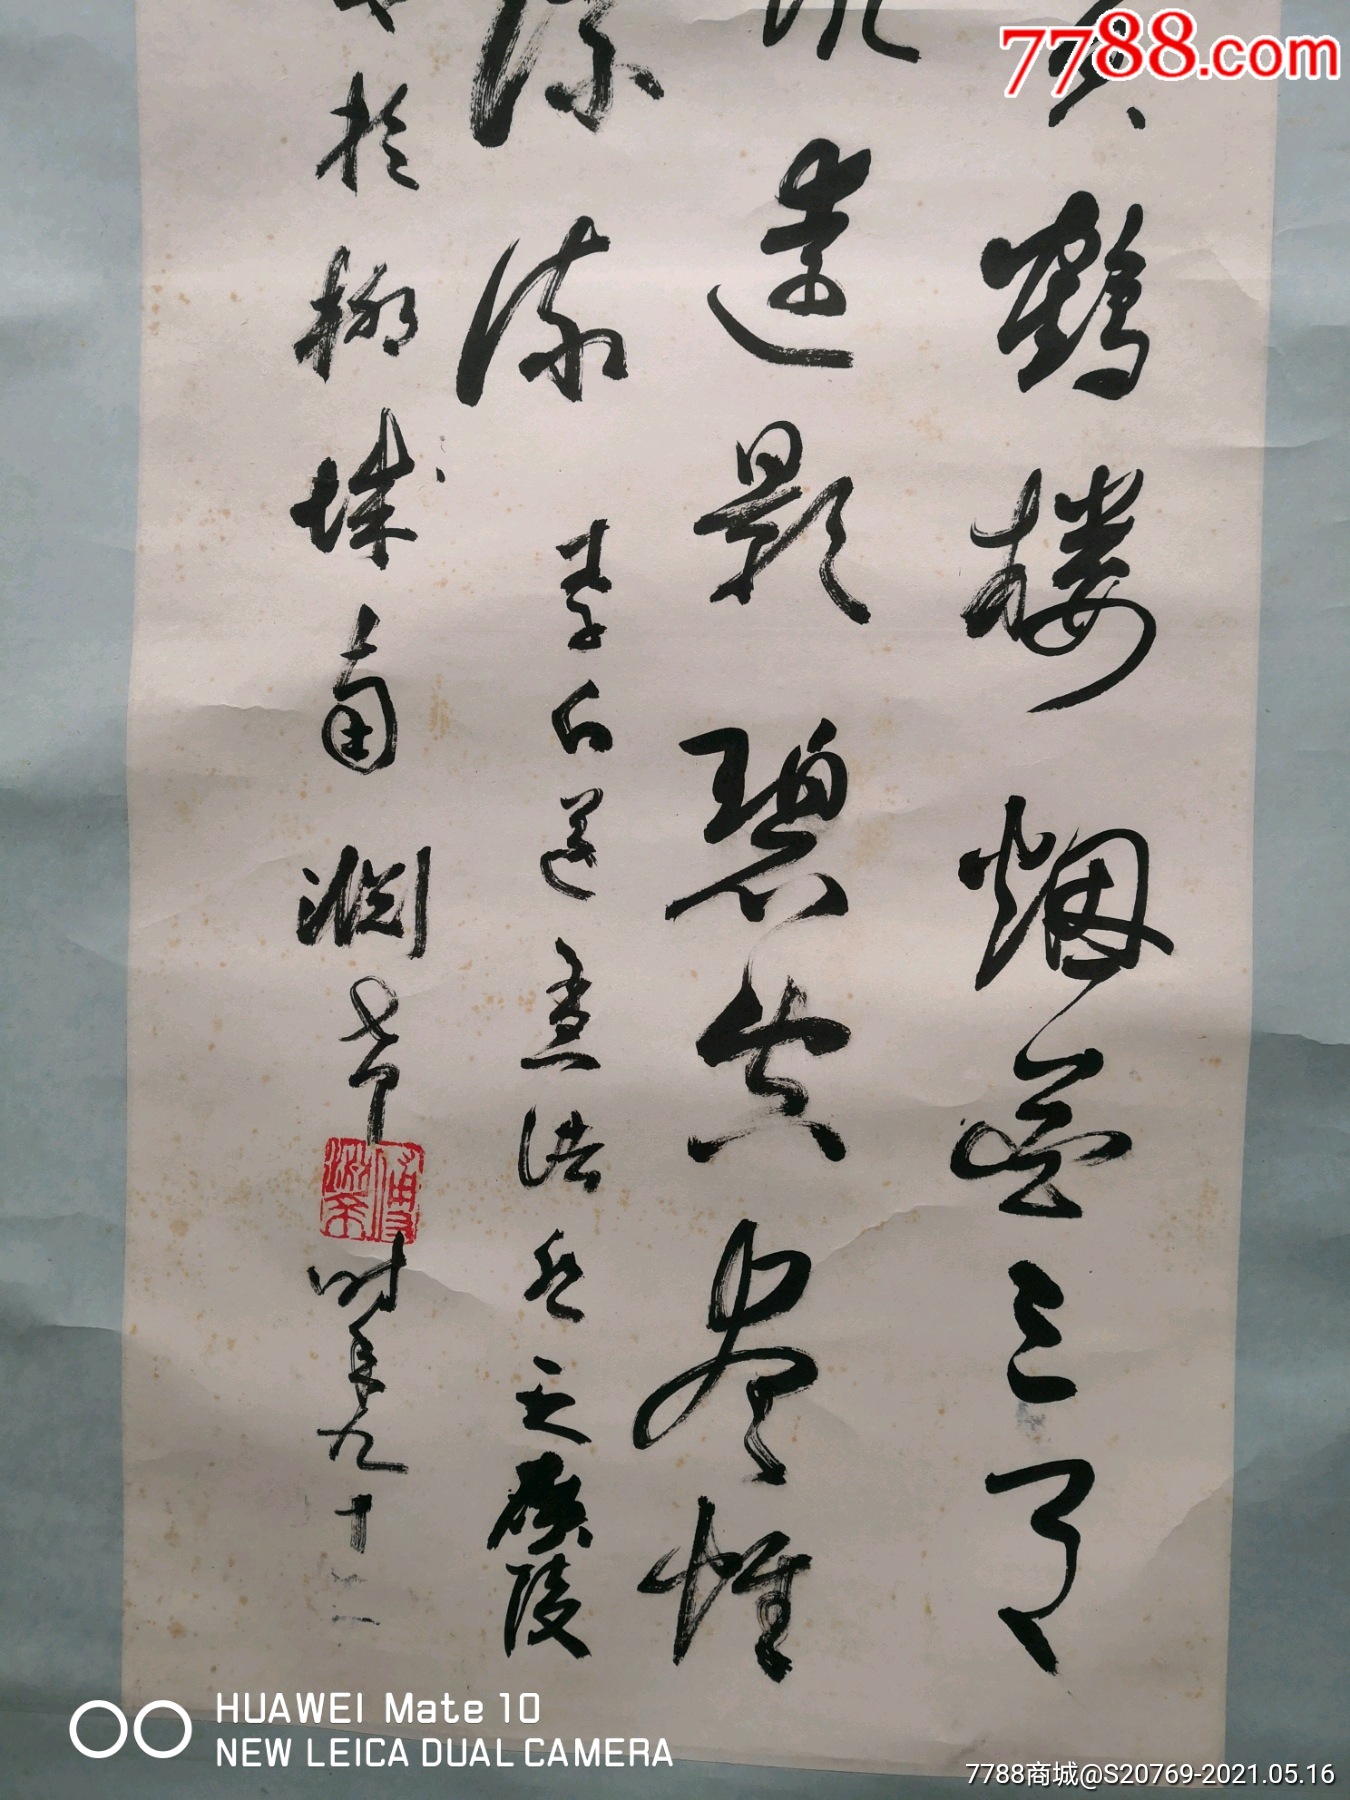 黄鹤楼烟花三月
帆遠影碧空尽惟
際流
李白送孟浩然之廣陵
於柳城南渊希
时年九十二
7788.com
HUAWEI Mate 10
NEW LEICA DUAL CAMERA
7788商城@S20769-2021.05.16